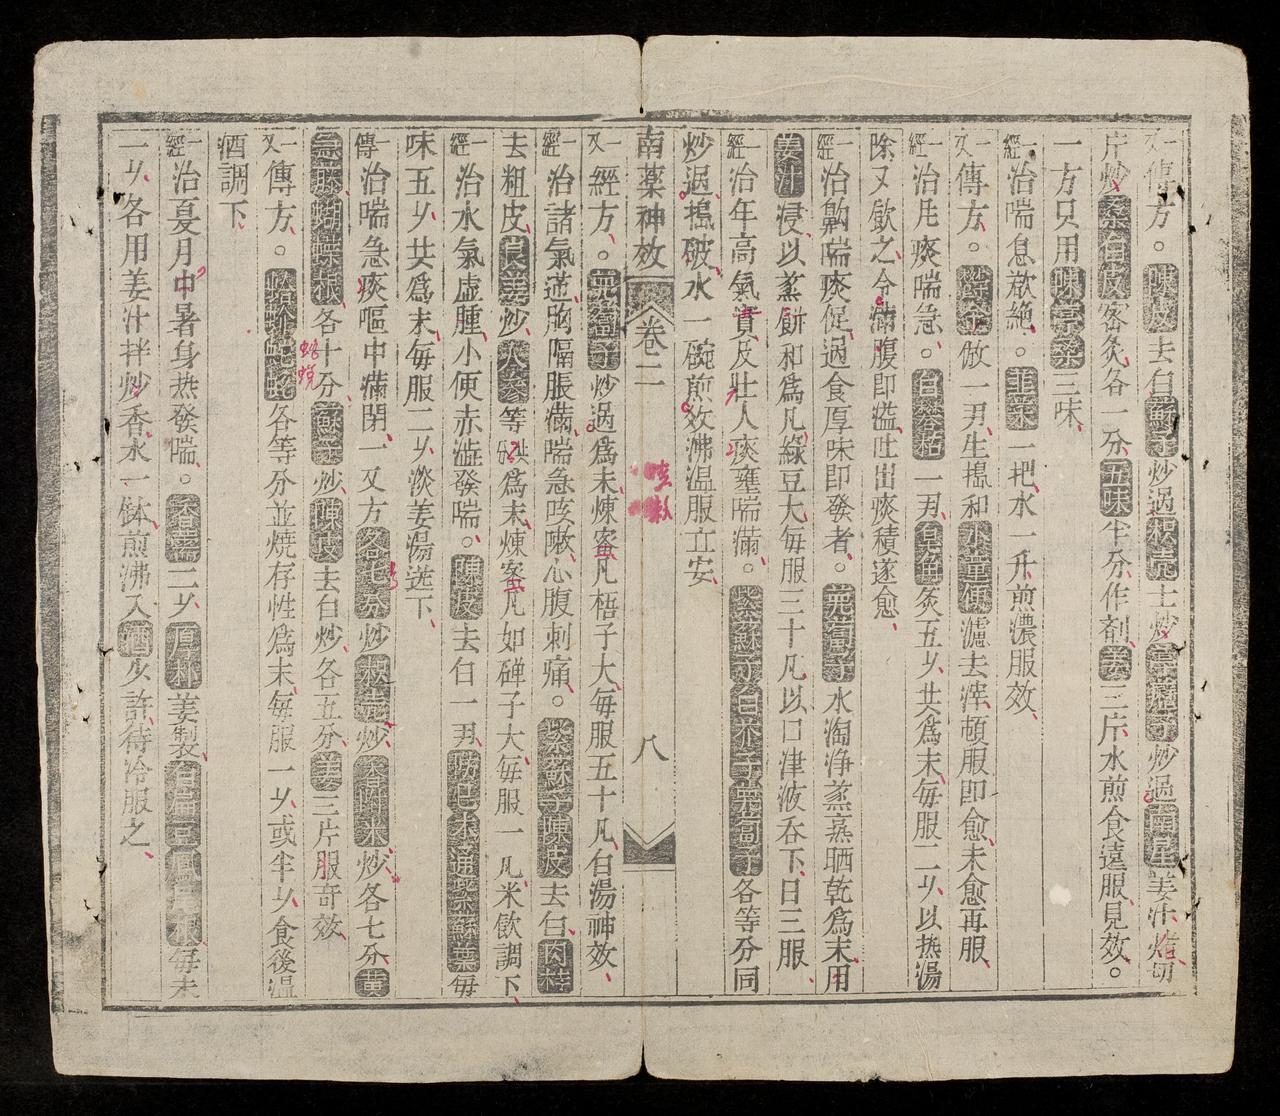 一又傳方。陳皮去白蘇子炒過枳壳土炒葶藶子炒過南星姜汁焙切
片炒桑白皮密灸各一分五味半分作剤姜三片水煎食遠服見效。
一方只用陳葶桑三味
一經治喘息欲絶。韮菜一把水一升煎濃服效
一又傳方。欝金倣一刄生搗和水童便濾去滓頓服即愈未愈再服
一經治凡痰喘急。白礬枯一刄皂角灸五𠆤共為末每服二𠆤以热湯
除又飲之令滿腹即溢吐出痰積遂愈
一經治齁喘痰促過食厚味即發者。萊菔子水淘净蒸熟晒乾為末用
姜汁浸以蒸餅和為凡綠豆大每服三十凡以口津液吞下日三服
一經治年高氣實及壮人痰壅喘滿。紫蘇子白芥子萊菔子各等分同
炒過搗破水一碗煎效沸温服立安
南藥神效 卷二 八
咳嗽
一又經方。萊菔子炒過為末煉蜜凡梧子大每服五十凡白湯神效
一經治諸氣逆胸膈脹滿喘急咳嗽心腹刺痛。紫蘇子陳皮去白肉桂
去粗皮良姜炒人參等分為末煉蜜凡如弹子大每服一凡米飲調下
一經治水氣虚腫小便赤澁發喘。陳皮去白一刄防己木通紫蘇葉每
味五𠆤共為末每服二𠆤淡姜湯送下
一傳治喘急痰嘔中滿閉一又方各七分炒枳壳炒香附米炒各七分黄
急藤蝴蝶根各十分蘇子炒陳皮去白炒各五分姜三片服奇效
一又傳方。蛤蚧蛇蛻各等分並焼存性為末每服一𠆤或半𠆤食後温
酒調下
一經治夏月中暑身热發喘。香薷二𠆤厚朴姜製白扁豆鳳尾根每味
一𠆤各用姜汁拌炒香水一鉢煎沸入酒少許待冷服之